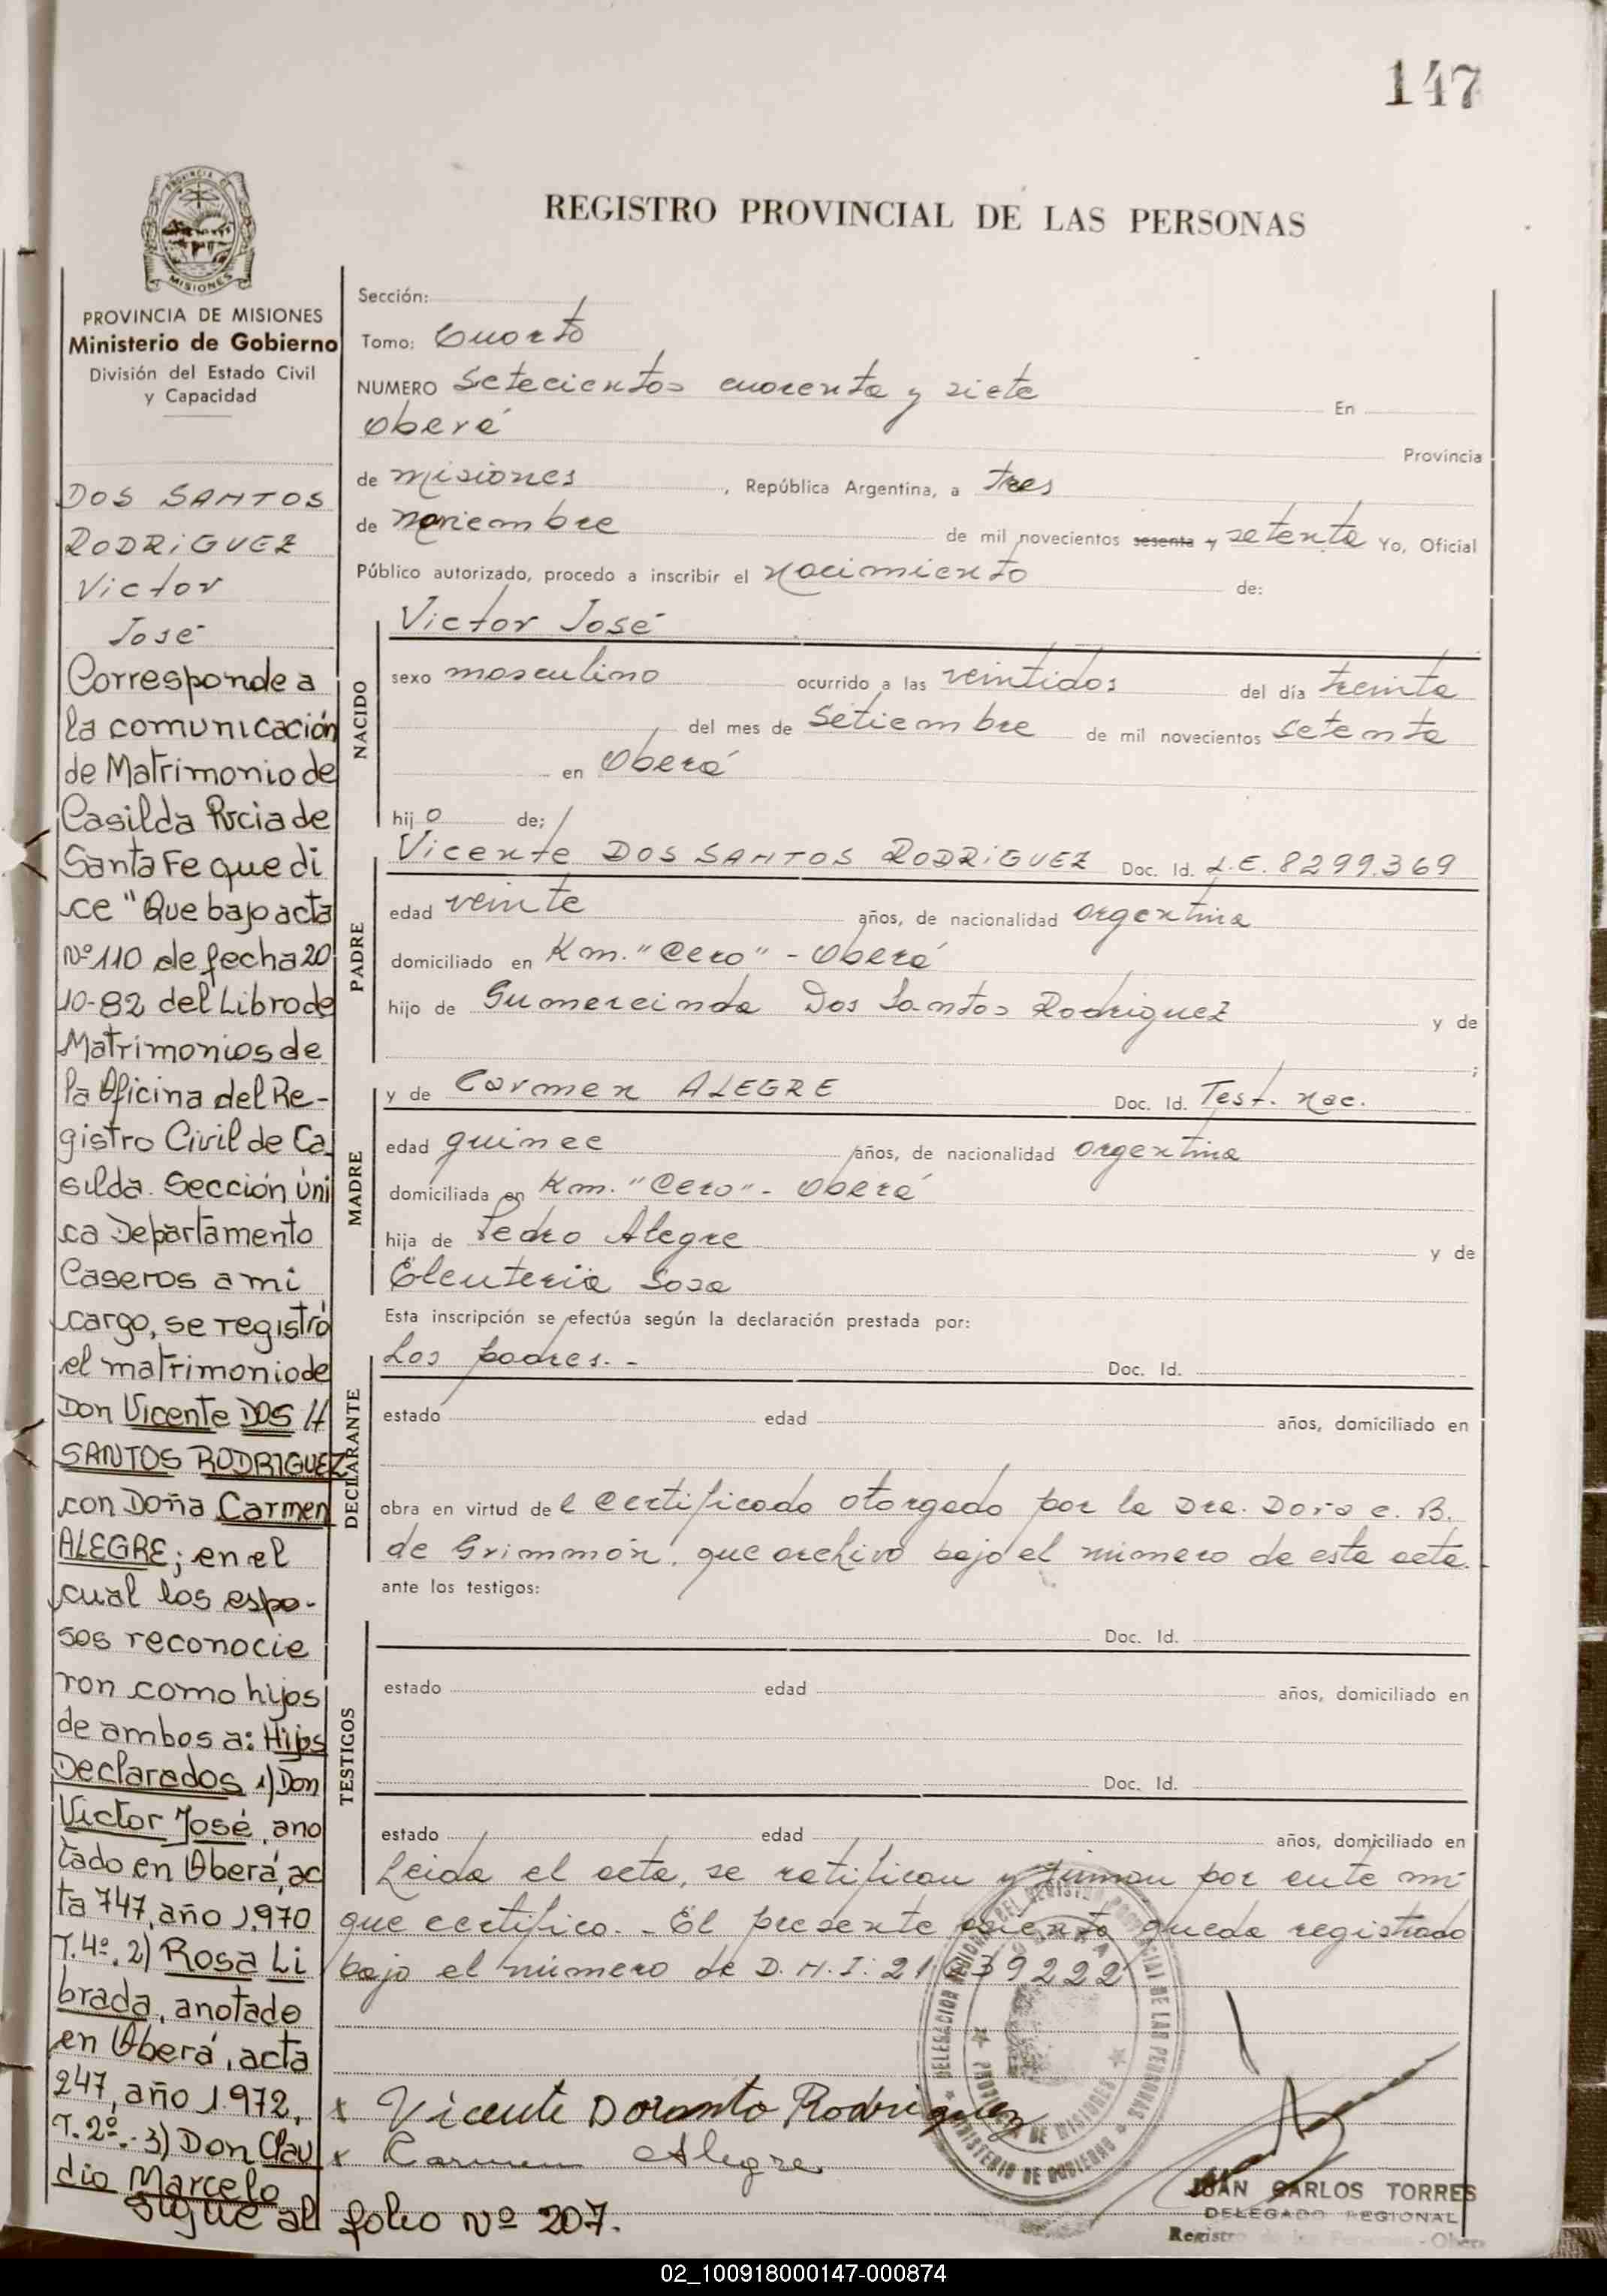 147
REGISTRO PROVINCIAL DE LAS PERSONAS
PROVINCIA DE
MISIONES
PROVINCIA DE MISIONES
Ministerio de Gobierno
División del Estado Civil
y Capacidad
DOS SANTOS
RODRIGUEZ
Victor
José
Corresponde a
la comunicación
de Matrimonio de
Casilda Pvcia de
Santa Fe que di
ce "Que bajo acta
Nº 110 de fecha 20
10-82 del Libro de
Matrimonios de
la Oficina del Re-
gistro Civil de Ca
silda. Sección Uni
ca Departamento
Caseros a mi
cargo, se registró
el matrimonio de
Don Vicente DOS
SANTOS RODRIGUEZ
con Doña Carmen
ALEGRE; en el
cual los espo-
sos reconocie
ron como hijos
de ambos a: Hijos
Declarados 1) Don
Victor José, ano
tado en Oberá, ac
ta 747, año 1.970
T.4º. 2) Rosa Li
brada, anotado
en Oberá, acta
247, año 1.972,
T.2º.- 3) Don Clau
dio Marcelo
sigue al folio Nº 207.
Sección:
Tomo: Cuarto
NUMERO Setecientos cuarenta y siete En
Oberá Provincia
de misiones, República Argentina, a tres
de noviembre de mil novecientos sesenta y setenta Yo, Oficial
Público autorizado, procedo a inscribir el nacimiento de:
Victor José
NACIDO
sexo masculino ocurrido a las veintidos del día treinta
del mes de Setiembre de mil novecientos setenta
en Oberá
hijo de;
PADRE
Vicente DOS SANTOS RODRIGUEZ Doc. Id. L.E. 8299.369
edad veinte años, de nacionalidad argentina
domiciliado en Km. "Cero" - Oberá
hijo de Gumercinda Dos Santos Rodriguez y de
;
MADRE
y de Carmen ALEGRE Doc. Id. Test. nac.
edad quince años, de nacionalidad argentina
domiciliada en Km. "Cero" - Oberá
hija de Pedro Alegre y de
Eleuteria Sosa
Esta inscripción se efectúa según la declaración prestada por:
DECLARANTE
Los padres. - Doc. Id.
estado edad años, domiciliado en
obra en virtud del certificado otorgado por la Dra. Dora C. B.
de Grimmón, que archivo bajo el número de esta acta.
ante los testigos:
TESTIGOS
Doc. Id.
estado edad años, domiciliado en
Doc. Id.
estado edad años, domiciliado en
Leida el acta, se ratifican y firman por ante mi
que certifico. - El presente asiento queda registrado
bajo el número de D.N.I: 21639222
x Vicente Dosanto Rodriguez
x Carmen Alegre
MINISTERIO DE GOBIERNO
PROVINCIA DE MISIONES
JUAN CARLOS TORRES
DELEGADO REGIONAL
Registro de las Personas - Oberá
02_100918000147-000874